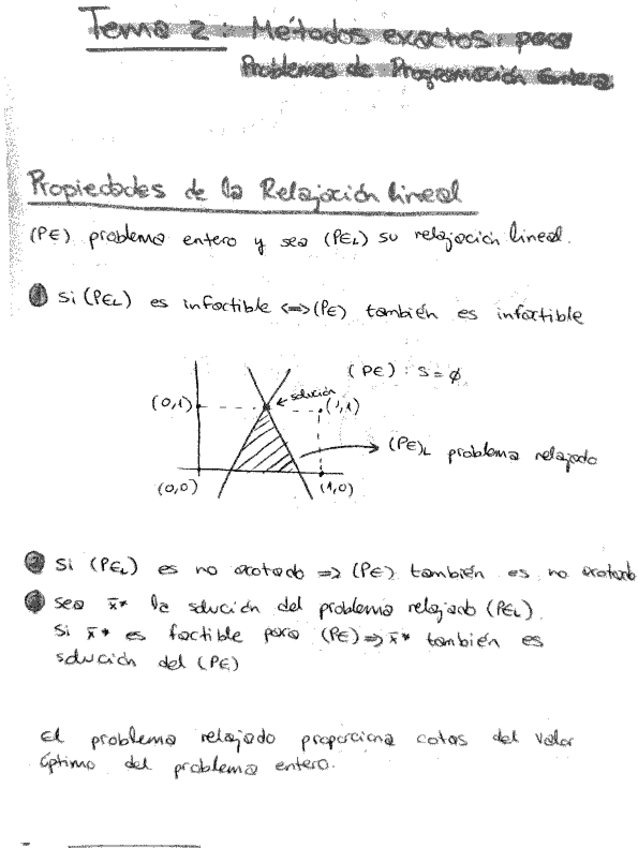 Tema 2: Métodos exactos para
Problemas de Programación Entera
Propiedades de la Relajación lineal
(PE) problema entero y sea (PEL) su relajación lineal.
1 Si (PEL) es infactible <=> (PE) también es infactible
(PE): S = ϕ
← solución
(0,1)
(1,1)
(PE)L problema relajado
(0,0)
(1,0)
2 Si (PEL) es no acotado => (PE) también es no acotado
3 Sea x̄* la solución del problema relajado (PEL).
Si x̄* es factible para (PE) => x̄* también es
solución del (PE)
El problema relajado proporciona cotas del valor
óptimo del problema entero.